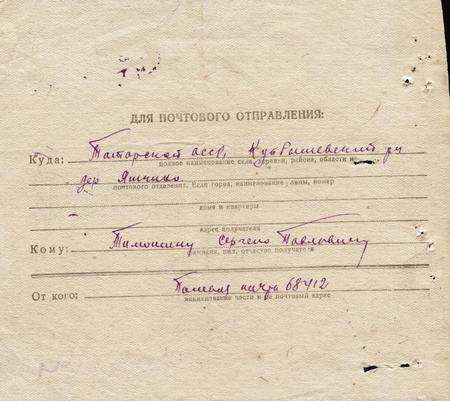 ДЛЯ ПОЧТОВОГО ОТПРАВЛЕНИЯ:
Куда: Татарской АССР, Куйбышевский р-н
полное наименование села, деревни, района, области и
дер
почтового отделения. Если город, наименование улицы, номер
дома и квартиры
адрес получателя
Кому: Тимошину Сергею Павловичу
фамилия, имя, отчество получателя
От кого: Полевая почта 68412
наименование части и ее почтовый адрес